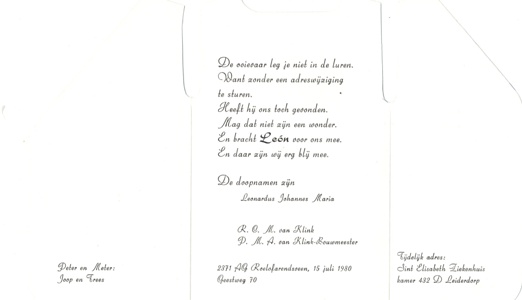 De ooievaar leg je niet in de luren.
Want zonder een adreswijziging
te sturen.
Heeft hij ons toch gevonden.
Mag dat niet zijn een wonder.
En bracht León voor ons mee.
En daar zijn wij erg blij mee.
De doopnamen zijn
Leonardus Johannes Maria
R. C. M. van Klink
P. M. A. van Klink-Bouwmeester
2371 AG Roelofarendsveen, 15 juli 1980
Geestweg 70
Peter en Meter:
Joop en Trees
Tijdelijk adres:
Sint Elisabeth Ziekenhuis
kamer 432 D Leiderdorp